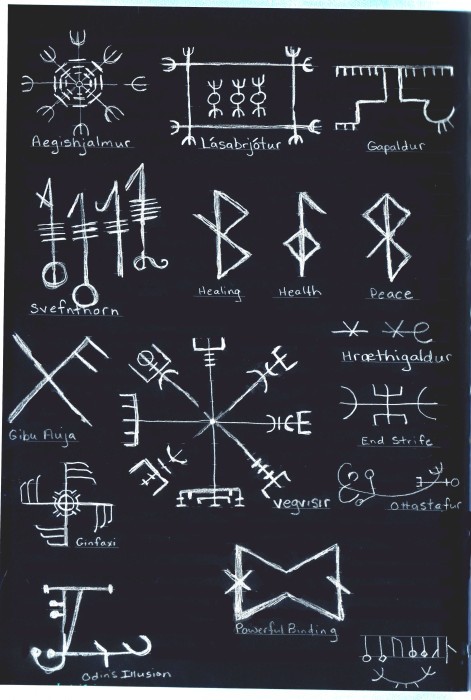 Aegishjalmur
Lásabrjótur
Gapaldur
Svefnthorn
Healing
Health
Peace
Hræthigaldur
Gibu Auja
End Strife
Vegvisir
Ottastafur
Ginfaxi
Powerful Binding
Odins Illusian